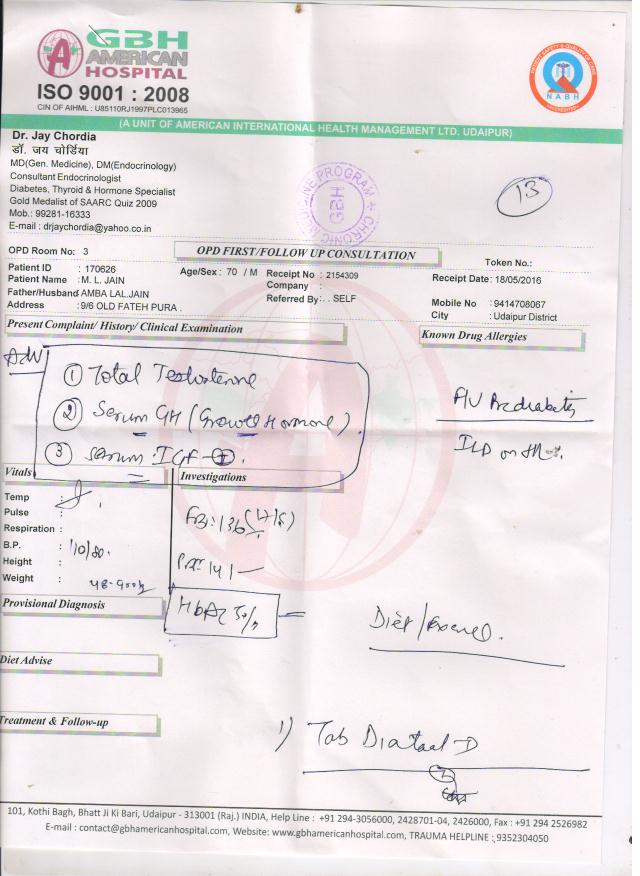 GBH
AMERICAN
HOSPITAL
ISO 9001 : 2008
CIN OF AIHML : U85110RJ1997PLC013965
PATIENT SAFETY & QUALITY OF CARE
NABH
(A UNIT OF AMERICAN INTERNATIONAL HEALTH MANAGEMENT LTD. UDAIPUR)
Dr. Jay Chordia
डॉ. जय चोर्डिया
MD(Gen. Medicine), DM(Endocrinology)
Consultant Endocrinologist
Diabetes, Thyroid & Hormone Specialist
Gold Medalist of SAARC Quiz 2009
Mob.: 99281-16333
E-mail : drjaychordia@yahoo.co.in
CHRONIC MEDICINE PROGRAM
GBH
13
OPD Room No: 3
OPD FIRST/FOLLOW UP CONSULTATION
Token No.:
Patient ID : 170626
Age/Sex : 70 / M
Receipt No : 2154309
Receipt Date : 18/05/2016
Patient Name : M. L. JAIN
Company :
Father/Husband AMBA LAL.JAIN
Referred By: . SELF
Mobile No : 9414708067
Address : 9/6 OLD FATEH PURA .
City : Udaipur District
Present Complaint/ History/ Clinical Examination
Known Drug Allergies
Adv
① Total Testosterone
② Serum GH (Growth Hormone).
③ Serum IGF-I.
F/U Prediabetes
ILD on
Vitals
Investigations
Temp :
Pulse :
Respiration :
B.P. : 110/80.
Height :
Weight : 48.900
FBS: 136
141
HbA1c
Provisional Diagnosis
Diet/
Diet Advise
Treatment & Follow-up
1) Tab D
101, Kothi Bagh, Bhatt Ji Ki Bari, Udaipur - 313001 (Raj.) INDIA, Help Line : +91 294-3056000, 2428701-04, 2426000, Fax : +91 294 2526982
E-mail : contact@gbhamericanhospital.com, Website: www.gbhamericanhospital.com, TRAUMA HELPLINE : 9352304050